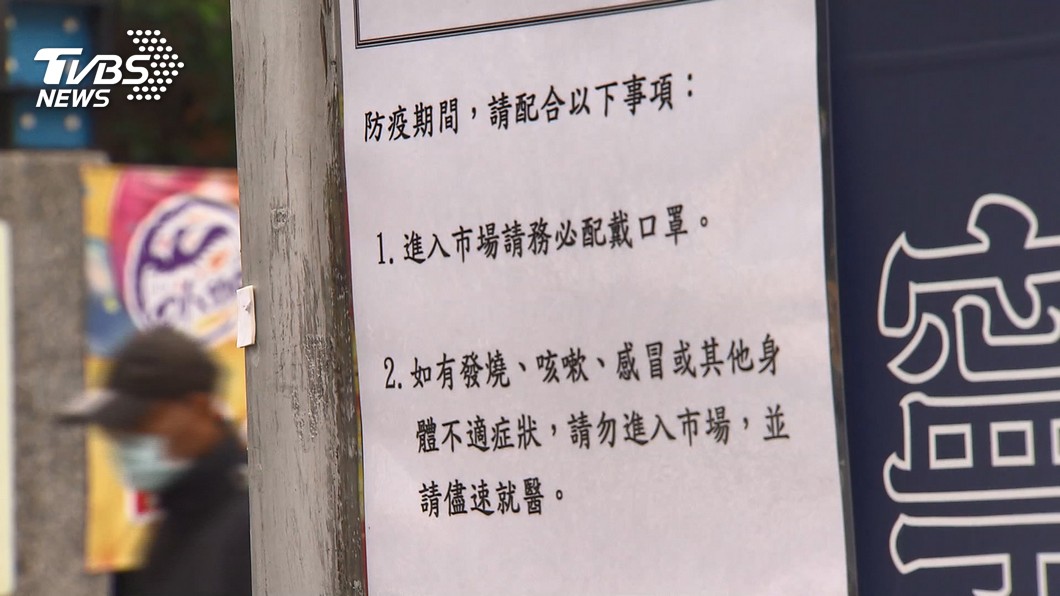 TVBS
NEWS
防疫期間，請配合以下事項：
1. 進入市場請務必配戴口罩。
2. 如有發燒、咳嗽、感冒或其他身
體不適症狀，請勿進入市場，並
請儘速就醫。